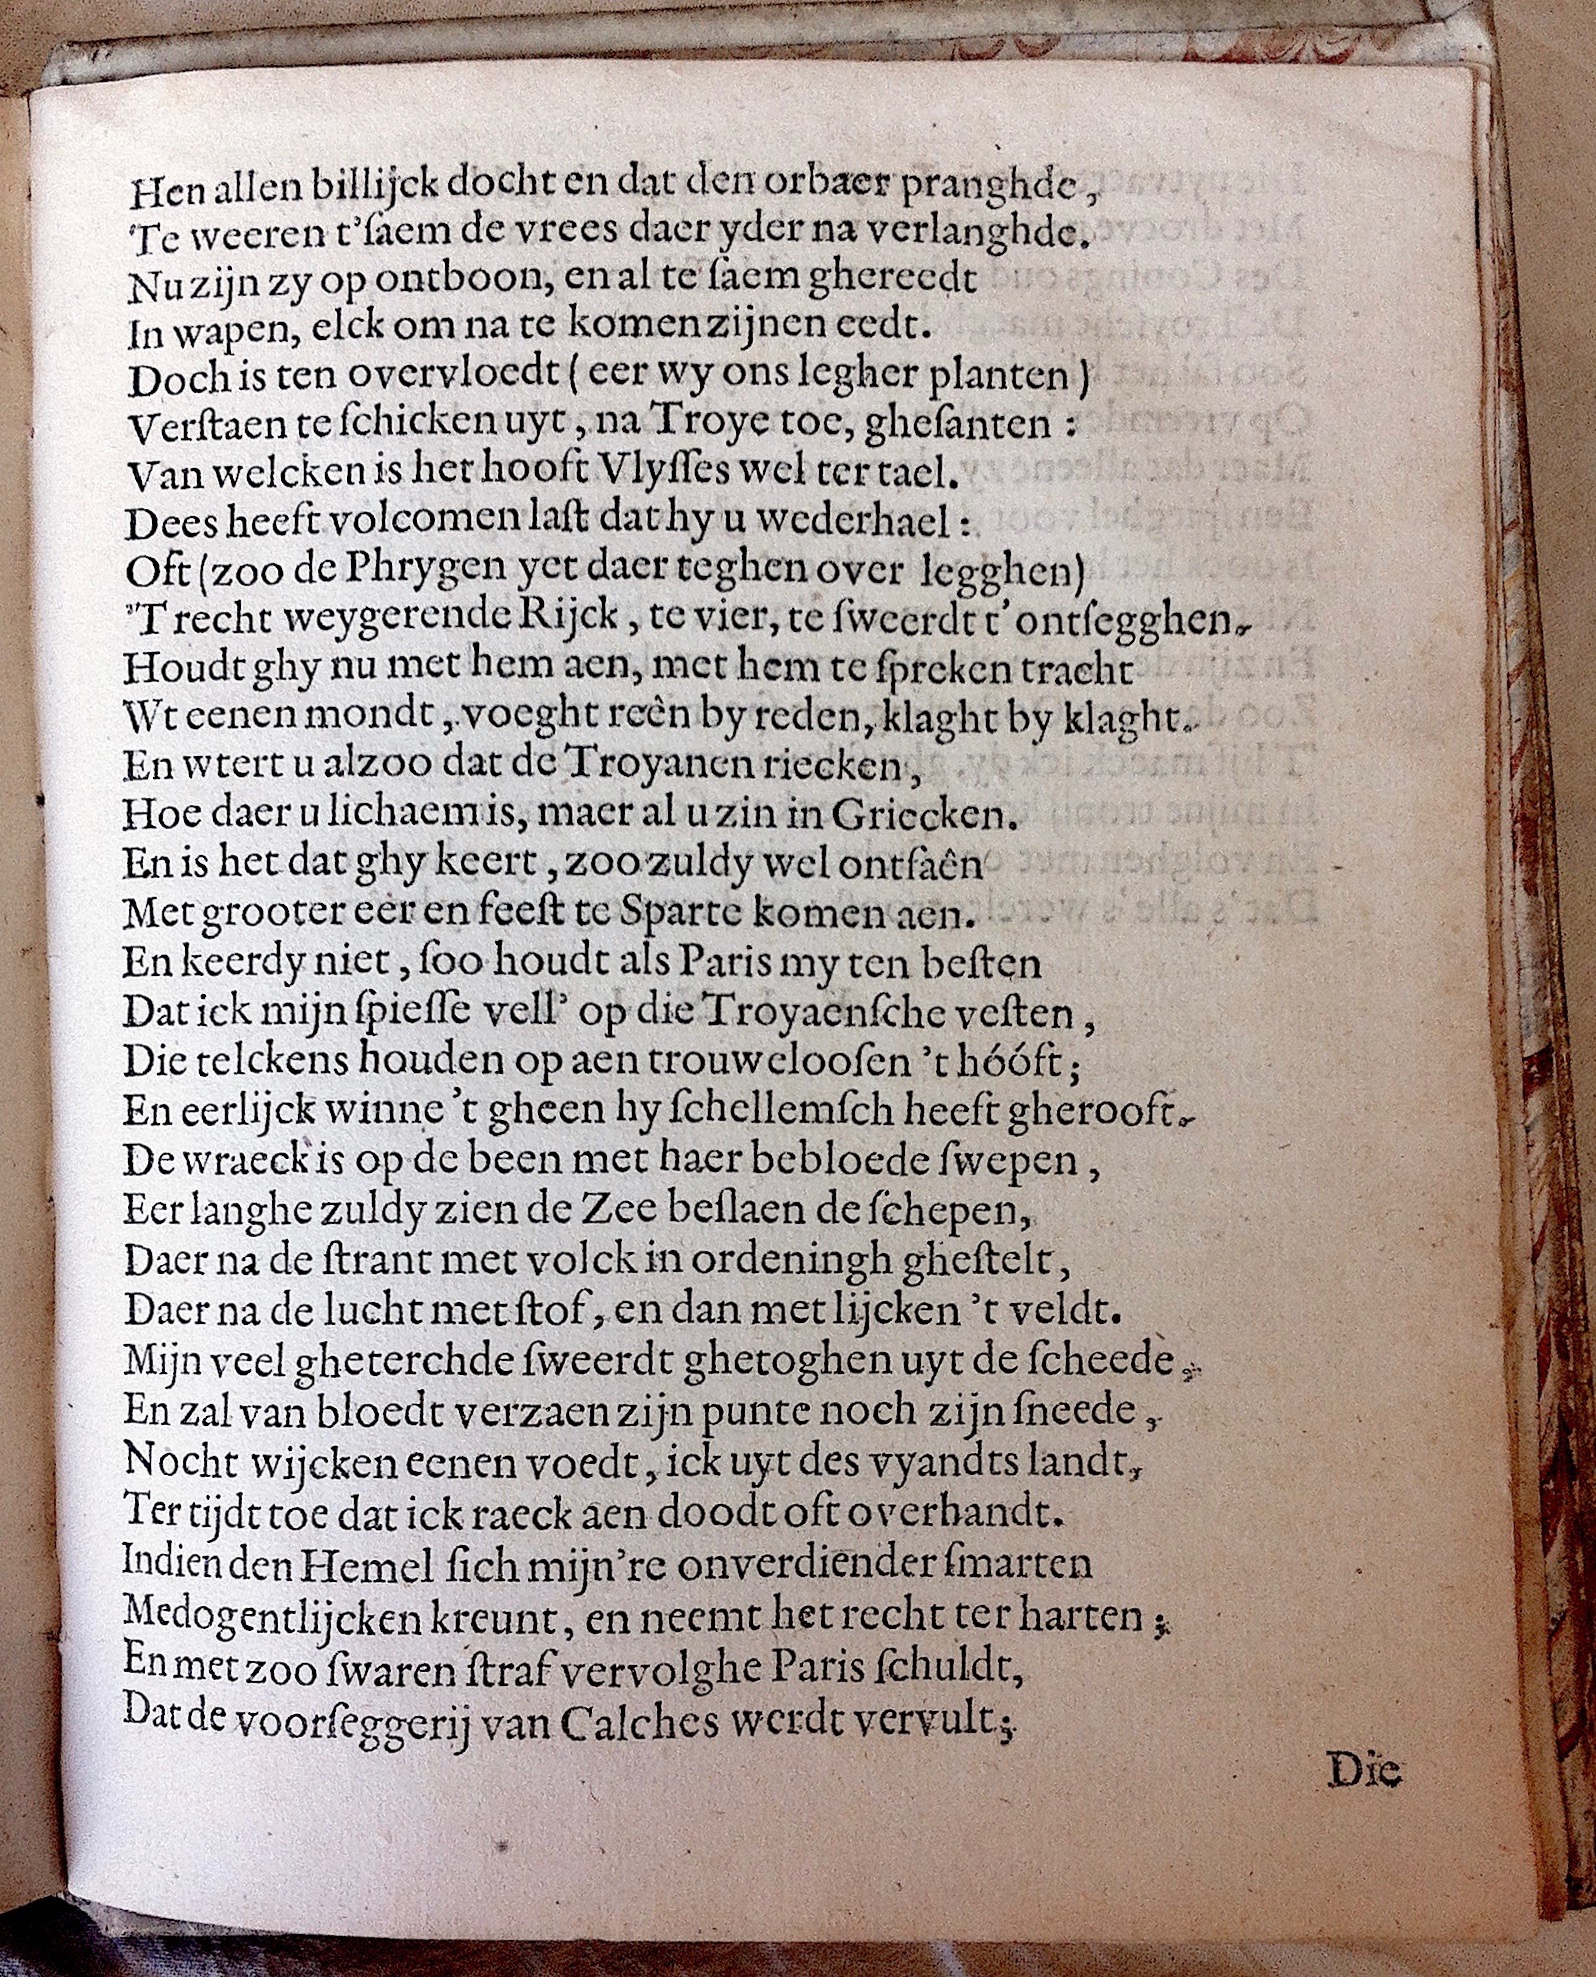 Hen allen billijck docht en dat den orbaer pranghde,
'Te weeren t'ſaem de vrees daer yder na verlanghde.
Nu zijn zy op ontboon, en al te ſaem ghereedt
In wapen, elck om na te komen zijnen eedt.
Doch is ten overvloedt ( eer wy ons legher planten )
Verſtaen te ſchicken uyt, na Troye toe, gheſanten :
Van welcken is het hooft Vlyſſes wel ter tael.
Dees heeft volcomen laſt dat hy u wederhael :
Oft (zoo de Phrygen yet daer teghen over legghen)
'T recht weygerende Rijck, te vier, te ſweerdt t' ontſegghen.
Houdt ghy nu met hem aen, met hem te ſpreken tracht
Wt eenen mondt, voeght reên by reden, klaght by klaght.
En wtert u alzoo dat de Troyanen riecken,
Hoe daer u lichaem is, maer al u zin in Griecken.
En is het dat ghy keert, zoo zuldy wel ontfaên
Met grooter eer en feeſt te Sparte komen aen.
En keerdy niet, ſoo houdt als Paris my ten beſten
Dat ick mijn ſpieſſe vell' op die Troyaenſche veſten,
Die telckens houden op aen trouwelooſen 't hóóft;
En eerlijck winne 't gheen hy ſchellemſch heeft gherooft.
De wraeck is op de been met haer bebloede ſwepen,
Eer langhe zuldy zien de Zee beſlaen de ſchepen,
Daer na de ſtrant met volck in ordeningh gheſtelt,
Daer na de lucht met ſtof, en dan met lijcken 't veldt.
Mijn veel gheterchde ſweerdt ghetoghen uyt de ſcheede,
En zal van bloedt verzaen zijn punte noch zijn ſneede,
Nocht wijcken eenen voedt, ick uyt des vyandts landt,
Ter tijdt toe dat ick raeck aen doodt oft overhandt.
Indien den Hemel ſich mijn're onverdiender ſmarten
Medogentlijcken kreunt, en neemt het recht ter harten;
En met zoo ſwaren ſtraf vervolghe Paris ſchuldt,
Dat de voorſeggerij van Calches werdt vervult;
Die